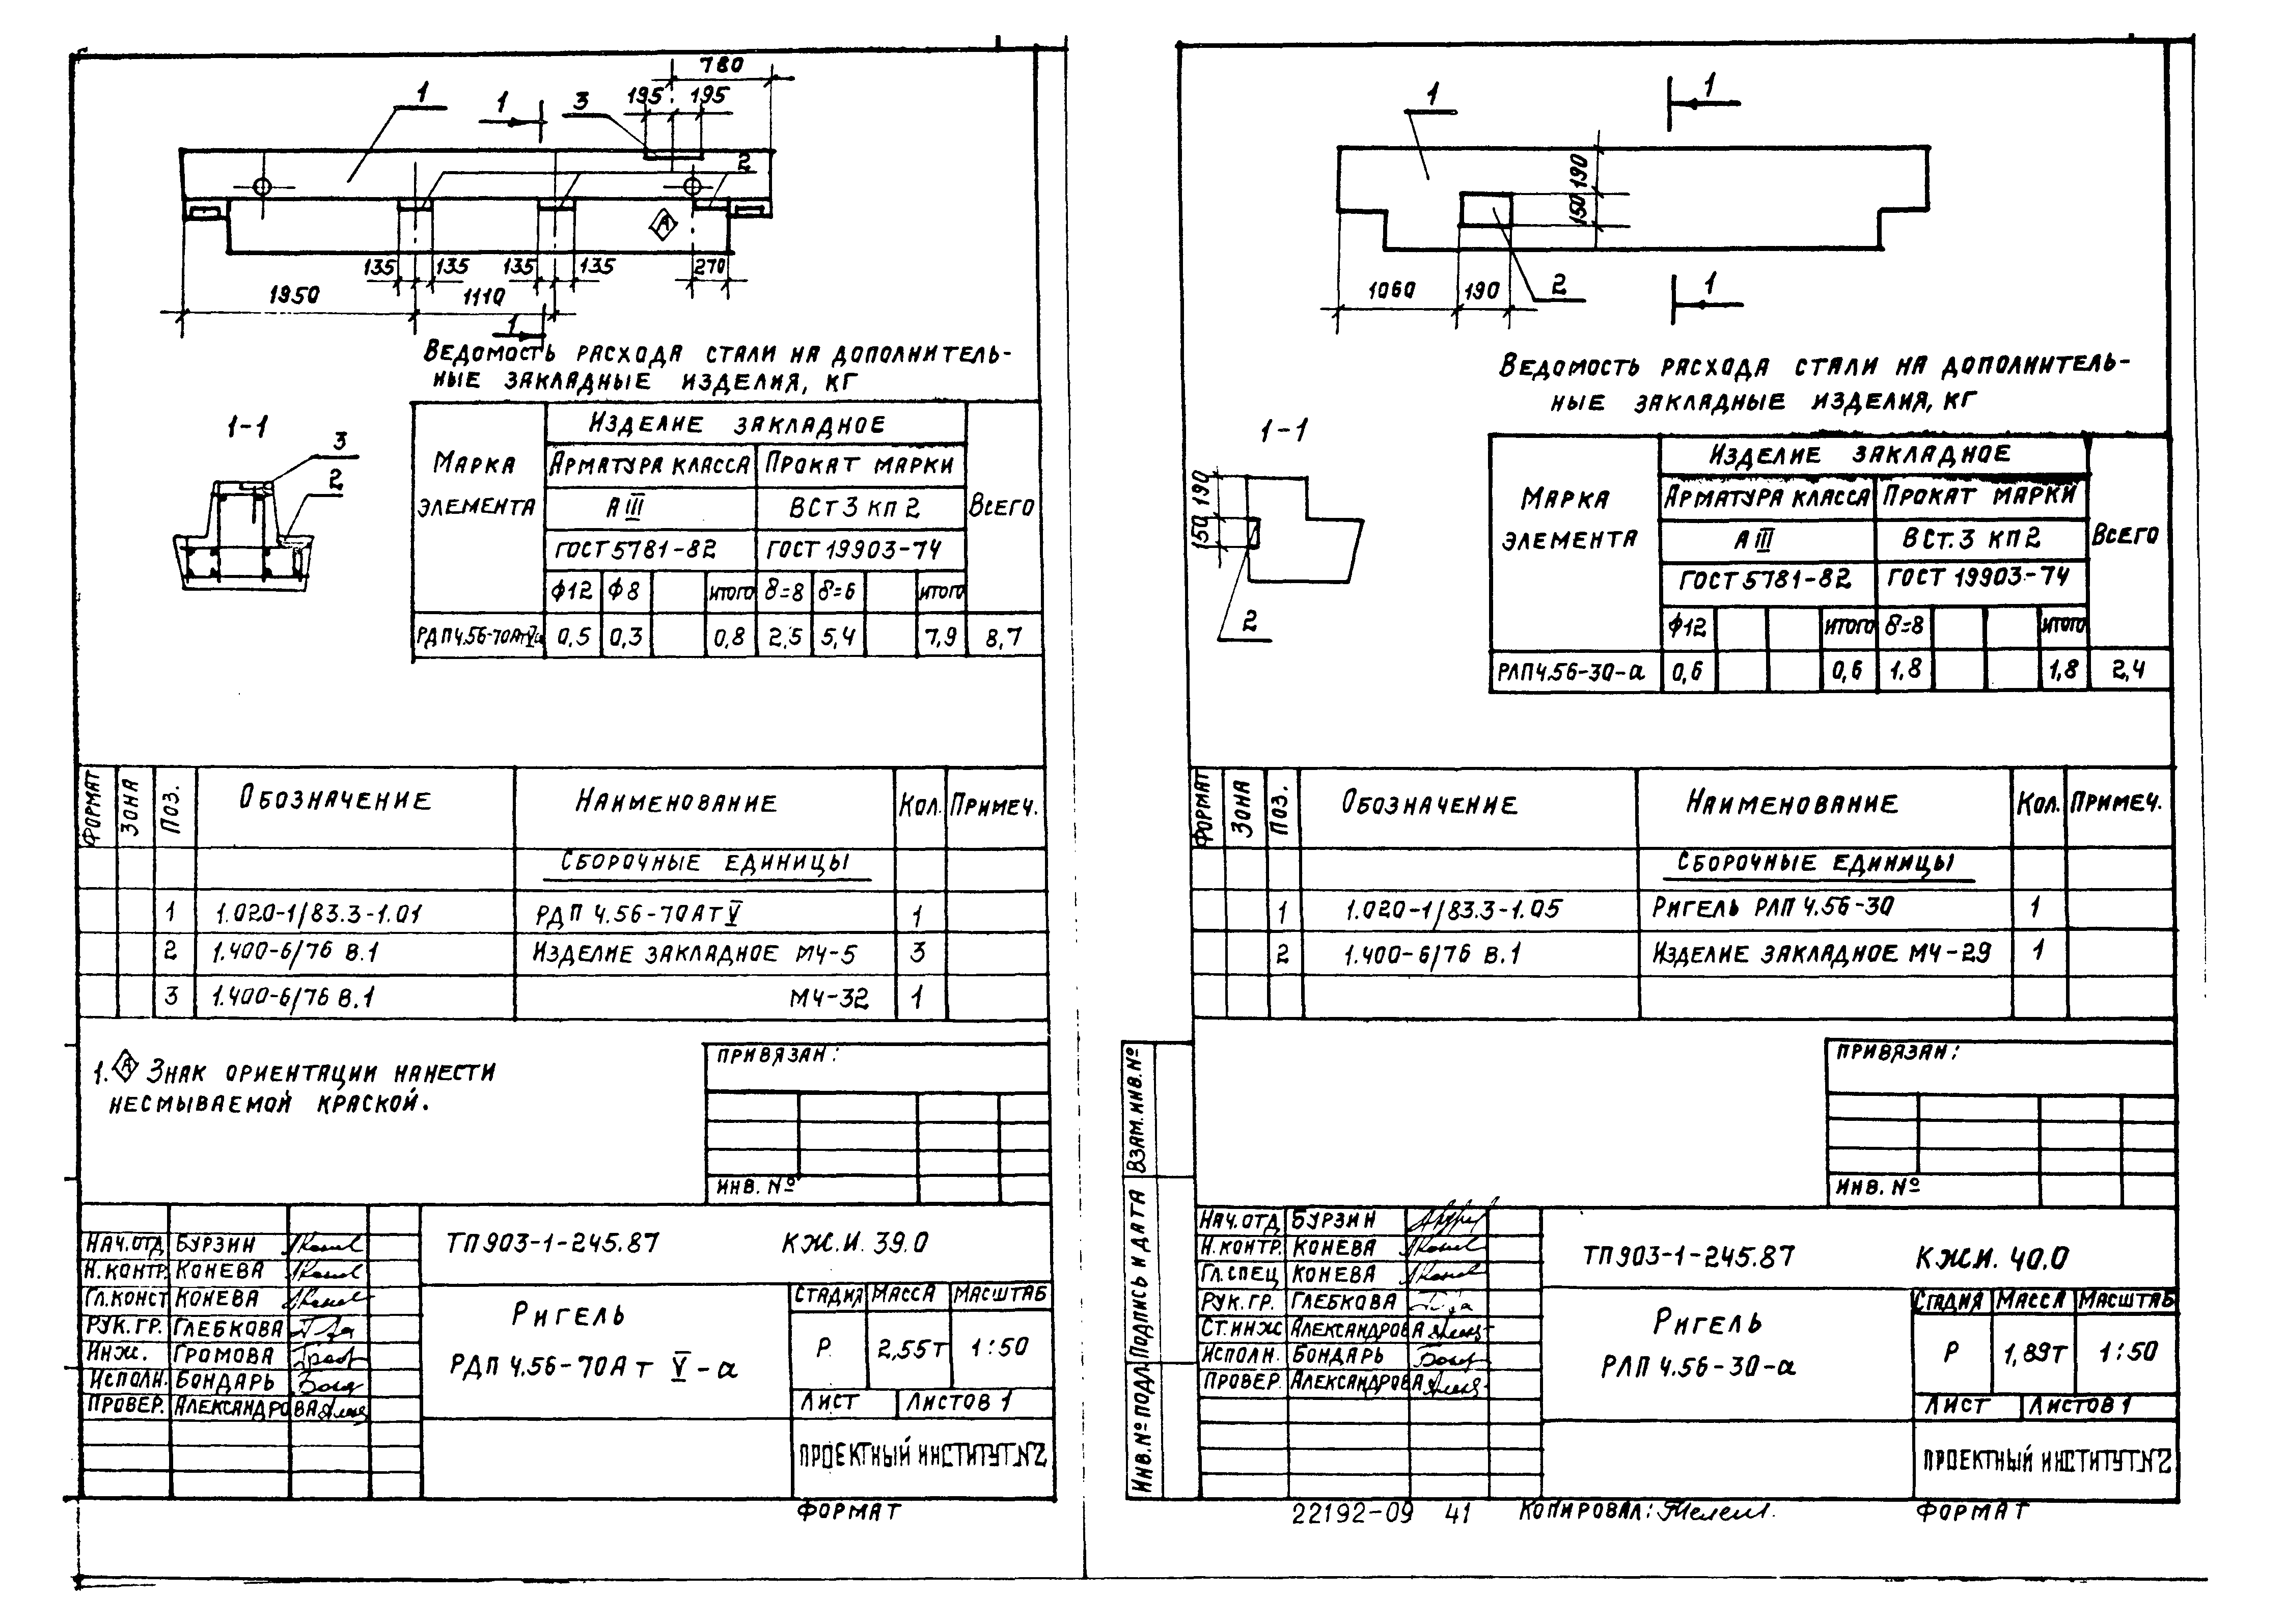 780
195 195
1
1
3
2
А
135 135 135 135 270
1950 1110
1
Ведомость расхода стали на дополнитель-
ные закладные изделия, кг
1-1
3
2
Марка элемента
Изделие закладное
Всего
Арматура класса Прокат марки
А III ВСт3 кп2
ГОСТ 5781-82 ГОСТ 19903-74
ф12 ф8 итого δ=8 δ=6 итого
РДП4.56-70АтV-а 0,5 0,3 0,8 2,5 5,4 7,9 8,7
Формат Зона Поз. Обозначение Наименование Кол. Примеч.
Сборочные единицы
1 1.020-1/83.3-1.01 РДП 4.56-70АтV 1
2 1.400-6/76 В.1 Изделие закладное М4-5 3
3 1.400-6/76 В.1 М4-32 1
1. А Знак ориентации нанести
несмываемой краской.
Привязан:
Инв. №
Нач.отд Бурзин
Н.контр. Конева
Гл.конст Конева
Рук.гр. Глебкова
Инж. Громова
Исполн. Бондарь
Провер. Александрова
ТП903-1-245.87 КЖ.И. 39.0
Ригель
РДП 4.56-70Ат V-а
Стадия Масса Масштаб
Р 2,55т 1:50
Лист Листов 1
Проектный институт №2
Формат
1
1
190
150
2
1060 190
1
Ведомость расхода стали на дополнитель-
ные закладные изделия, кг
1-1
190
150
2
Марка элемента
Изделие закладное
Всего
Арматура класса Прокат марки
А III ВСт.3 кп2
ГОСТ 5781-82 ГОСТ 19903-74
ф12 итого δ=8 итого
РЛП4.56-30-а 0,6 0,6 1,8 1,8 2,4
Формат Зона Поз. Обозначение Наименование Кол. Примеч.
Сборочные единицы
1 1.020-1/83.3-1.05 Ригель РЛП 4.56-30 1
2 1.400-6/76 В.1 Изделие закладное М4-29 1
Привязан:
Инв. №
Взам.инв.№
Подпись и дата
Инв.№ подл.
Нач.отд Бурзин
Н.контр. Конева
Гл.спец Конева
Рук.гр. Глебкова
Ст.инж Александрова
Исполн. Бондарь
Провер. Александрова
ТП903-1-245.87 КЖ.И. 40.0
Ригель
РЛП 4.56-30-а
Стадия Масса Масштаб
Р 1,89т 1:50
Лист Листов 1
Проектный институт №2
22192-09 41 Копировал: Формат